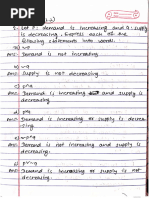 Q- Let P: demand is increasing and q: supply
is decreasing. Express each of the
following statements into words.
a) ~P
Ans- Demand is not increasing
b) ~q
Ans- Supply is not decreasing.
c) p^q
Ans- Demand is increasing and supply is
decreasing.
d) pvq
Ans- Demand is increasing or supply is
decreasing.
Ans- Demand is not increasing and supply is
decreasing.
Ans- Demand is increasing or supply is not
decreasing.